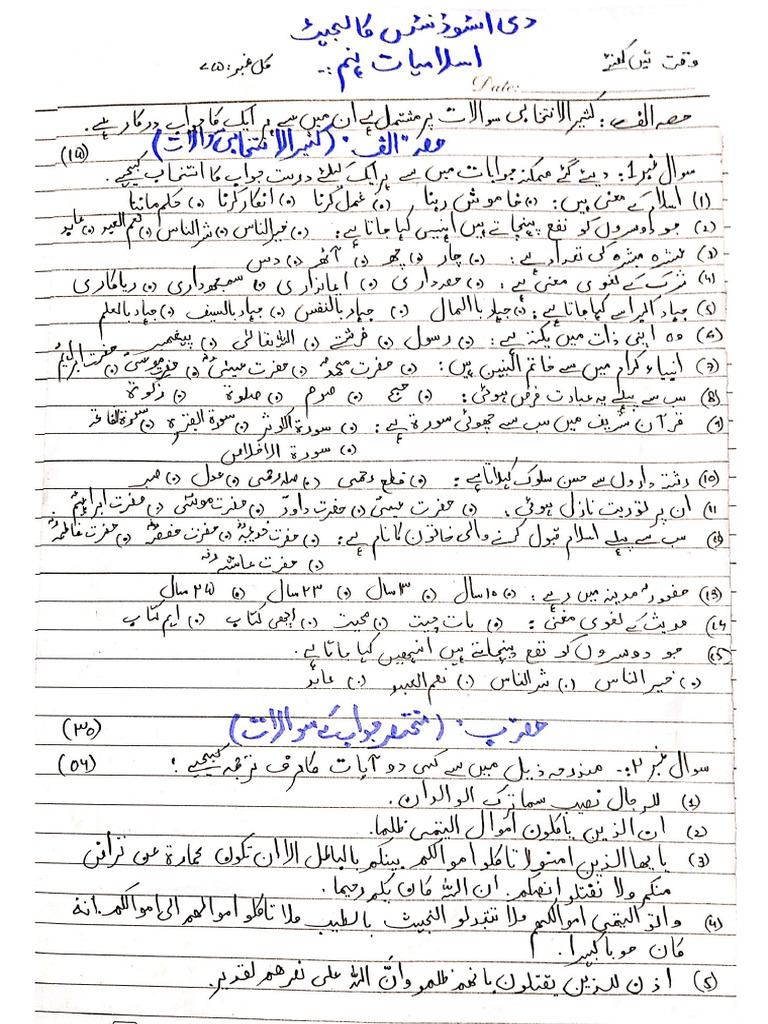 دی اسٹوڈنٹس کالجیٹ
وقت تین گھنٹے اسلامیات نہم کل نمبر: ۷۵
Date:
حصہ الف: کثیر الانتخابی سوالات پر مشتمل ہے ان میں سے ہر ایک کا جواب درکار ہے۔
حصہ "الف" (کثیر الانتخابی سوالات) (15)
سوال نمبر 1: دیئے گئے ممکنہ جوابات میں سے ہر ایک کیلئے درست جواب کا انتخاب کیجیے۔
(1) اسلام کے معنی ہیں: خاموش رہنا عمل کرنا انکار کرنا حکم ماننا
(2) جو دوسروں کو نفع پہنچاتے ہیں انہیں کہا جاتا ہے: خیر الناس شر الناس نعم العبد عابد
(3) عشرہ مبشرہ کی تعداد ہے: چار چھ آٹھ دس
(4) شرک کے لغوی معنی ہے: حصہ داری ایمانداری سمجھداری ریاکاری
(5) جہاد اکبر اسے کہا جاتا ہے: جہاد بالمال جہاد بالنفس جہاد بالسیف جہاد بالعلم
(6) وہ اپنی ذات میں یکتہ ہے: رسول فرشتے اللہ تعالی پیغمبر
(7) انبیاء کرام میں سے خاتم النبیین ہیں: حضرت محمدؐ حضرت عیسیٰؑ حضرت موسیٰؑ حضرت ابراہیمؑ
(8) سب سے پہلے یہ عبادت فرض ہوئی: حج صوم صلوۃ زکوۃ
(9) قرآن شریف میں سب سے چھوٹی سورۃ ہے: سورۃ الکوثر سورۃ البقرۃ سورۃ الفاتحہ
سورۃ الاخلاص
(10) رشتہ داروں سے حسن سلوک کہلاتا ہے: قطع رحمی صلہ رحمی عدل صبر
(11) ان پر توریت نازل ہوئی: حضرت عیسیٰؑ حضرت داودؑ حضرت موسیٰؑ حضرت ابراہیمؑ
(12) سب سے پہلے اسلام قبول کرنے والی خاتون کا نام ہے: حضرت خدیجہؓ حضرت حفصہؓ حضرت فاطمہؓ
حضرت عائشہؓ
(13) حضورؐ مدینہ میں رہے: 10 سال ۱۳ سال ۲۳ سال ۲۵ سال
(14) حدیث کے لغوی معنی: بات چیت محبت اچھی کتاب اہم کتاب
(15) جو دوسروں کو نفع پہنچاتے ہیں انہیں کہا جاتا ہے۔
خیر الناس شر الناس نعم العبد عابد
حصہ ب (مختصر جواب کے سوالات) (۳۰)
سوال نمبر ۲: مندرجہ ذیل میں سے کسی دو آیات کا صرف ترجمہ کیجیے: (04)
(1) للرجال نصیب مما ترک الوالدان۔
(2) ان الذین یاکلون اموال الیتمی ظلما۔
(3) یایھا الذین امنوا لا تاکلو اموالکم بینکم بالباطل الا ان تکون تجارۃ عن تراض
منکم ولا تقتلو انفسکم۔ ان اللہ کان بکم رحیما۔
(4) واتو الیتمی اموالکم ولا تتبدلو الخبیث بالطیب ولا تاکلو اموالھم الی اموالکم۔ انہ
کان حوبا کبیرا۔
(5) اذن للذین یقتلون بانھم ظلمو وانَّ اللہ علی نصرھم لقدیر۔